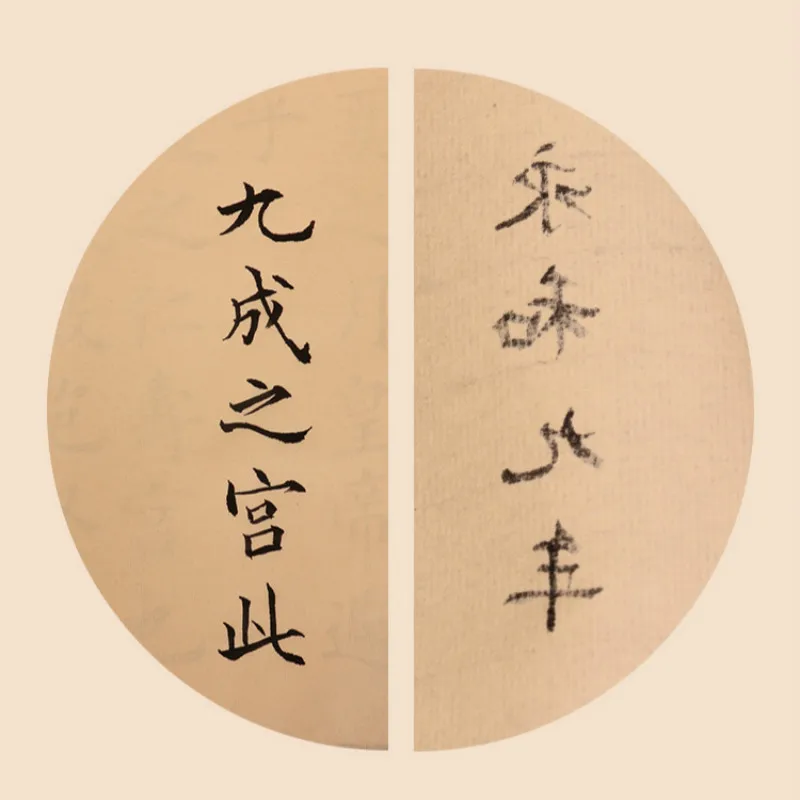 九成之宫此
永和九年